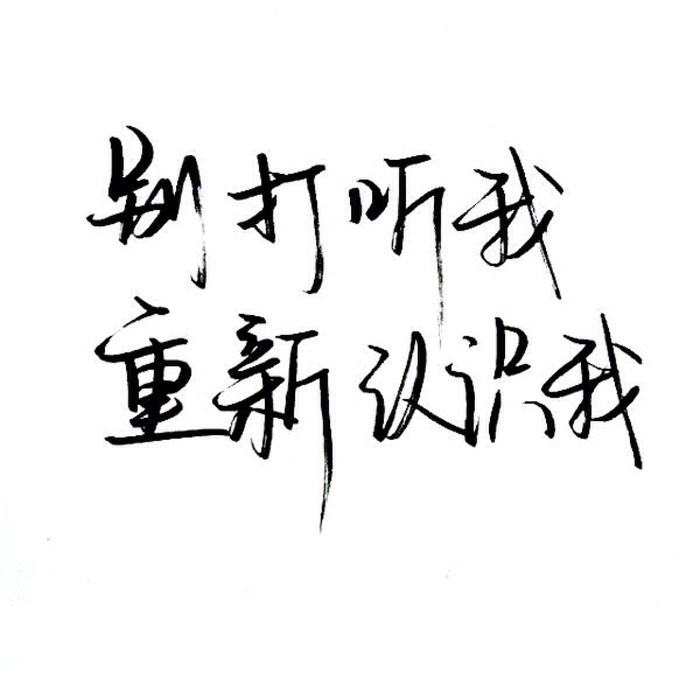 别打听我
重新认识我